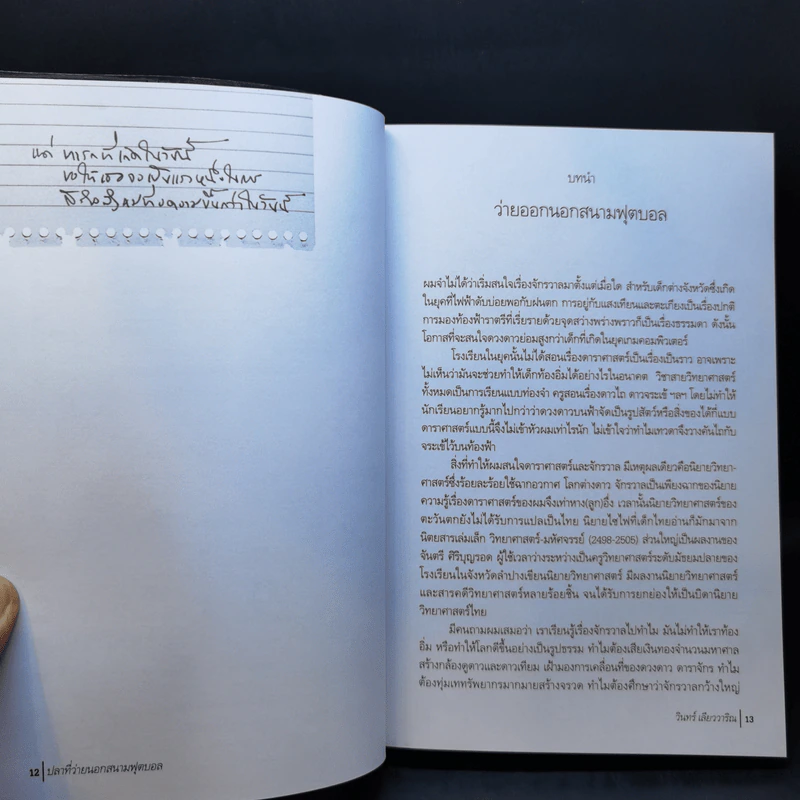 แด่ ทารกที่เกิดในวันนี้
ขอให้เธอจงเป็นแรงหนึ่งในการ
12 | ปลาที่ว่ายนอกสนามฟุตบอล
บทนำ
ว่ายออกนอกสนามฟุตบอล
ผมจำไม่ได้ว่าเริ่มสนใจเรื่องจักรวาลมาตั้งแต่เมื่อใด สำหรับเด็กต่างจังหวัดซึ่งเกิด
ในยุคที่ไฟฟ้าดับบ่อยพอกับฝนตก การอยู่กับแสงเทียนและตะเกียงเป็นเรื่องปกติ
การมองท้องฟ้าราตรีที่เรี่ยรายด้วยจุดสว่างพร่างพราวก็เป็นเรื่องธรรมดา ดังนั้น
โอกาสที่จะสนใจดวงดาวย่อมสูงกว่าเด็กที่เกิดในยุคเกมคอมพิวเตอร์
โรงเรียนในยุคนั้นไม่ได้สอนเรื่องดาราศาสตร์เป็นเรื่องเป็นราว อาจเพราะ
ไม่เห็นว่ามันจะช่วยทำให้เด็กท้องอิ่มได้อย่างไรในอนาคต วิชาสายวิทยาศาสตร์
ทั้งหมดเป็นการเรียนแบบท่องจำ ครูสอนเรื่องดาวไถ ดาวจระเข้ ฯลฯ โดยไม่ทำให้
นักเรียนอยากรู้มากไปกว่าว่าดวงดาวบนฟ้าจัดเป็นรูปสัตว์หรือสิ่งของใดที่แบบ
ดาราศาสตร์แบบนี้จึงไม่เข้าหัวผมเท่าไรนัก ไม่เข้าใจว่าทำไมเทวดาจึงวางคันไถกับ
จระเข้ไว้บนท้องฟ้า
สิ่งที่ทำให้ผมสนใจดาราศาสตร์และจักรวาล มีเหตุผลเดียวคือนิยายวิทยา-
ศาสตร์ซึ่งร้อยละร้อยใช้ฉากอวกาศ โลกต่างดาว จักรวาลเป็นเพียงฉากของนิยาย
ความรู้เรื่องดาราศาสตร์ของผมจึงเท่าหาง(ลูก)อึ่ง เวลานั้นนิยายวิทยาศาสตร์ของ
ตะวันตกยังไม่ได้รับการแปลเป็นไทย นิยายไซไฟที่เด็กไทยอ่านก็มักมาจาก
นิตยสารเล่มเล็ก วิทยาศาสตร์-มหัศจรรย์ (2498-2505) ส่วนใหญ่เป็นผลงานของ
จันตรี ศิริบุญรอด ผู้ใช้เวลาว่างระหว่างเป็นครูวิทยาศาสตร์ระดับมัธยมปลายของ
โรงเรียนในจังหวัดลำปางเขียนนิยายวิทยาศาสตร์ มีผลงานนิยายวิทยาศาสตร์
และสารคดีวิทยาศาสตร์หลายร้อยชิ้น จนได้รับการยกย่องให้เป็นบิดานิยาย
วิทยาศาสตร์ไทย
มีคนถามผมเสมอว่า เราเรียนรู้เรื่องจักรวาลไปทำไม มันไม่ทำให้เราท้อง
อิ่ม หรือทำให้โลกดีขึ้นอย่างเป็นรูปธรรม ทำไมต้องเสียเงินทองจำนวนมหาศาล
สร้างกล้องดูดาวและดาวเทียม เฝ้ามองการเคลื่อนที่ของดวงดาว ดาราจักร ทำไม
ต้องทุ่มเททรัพยากรมากมายสร้างจรวด ทำไมต้องศึกษาว่าจักรวาลกว้างใหญ่
วินทร์ เลียววาริณ | 13